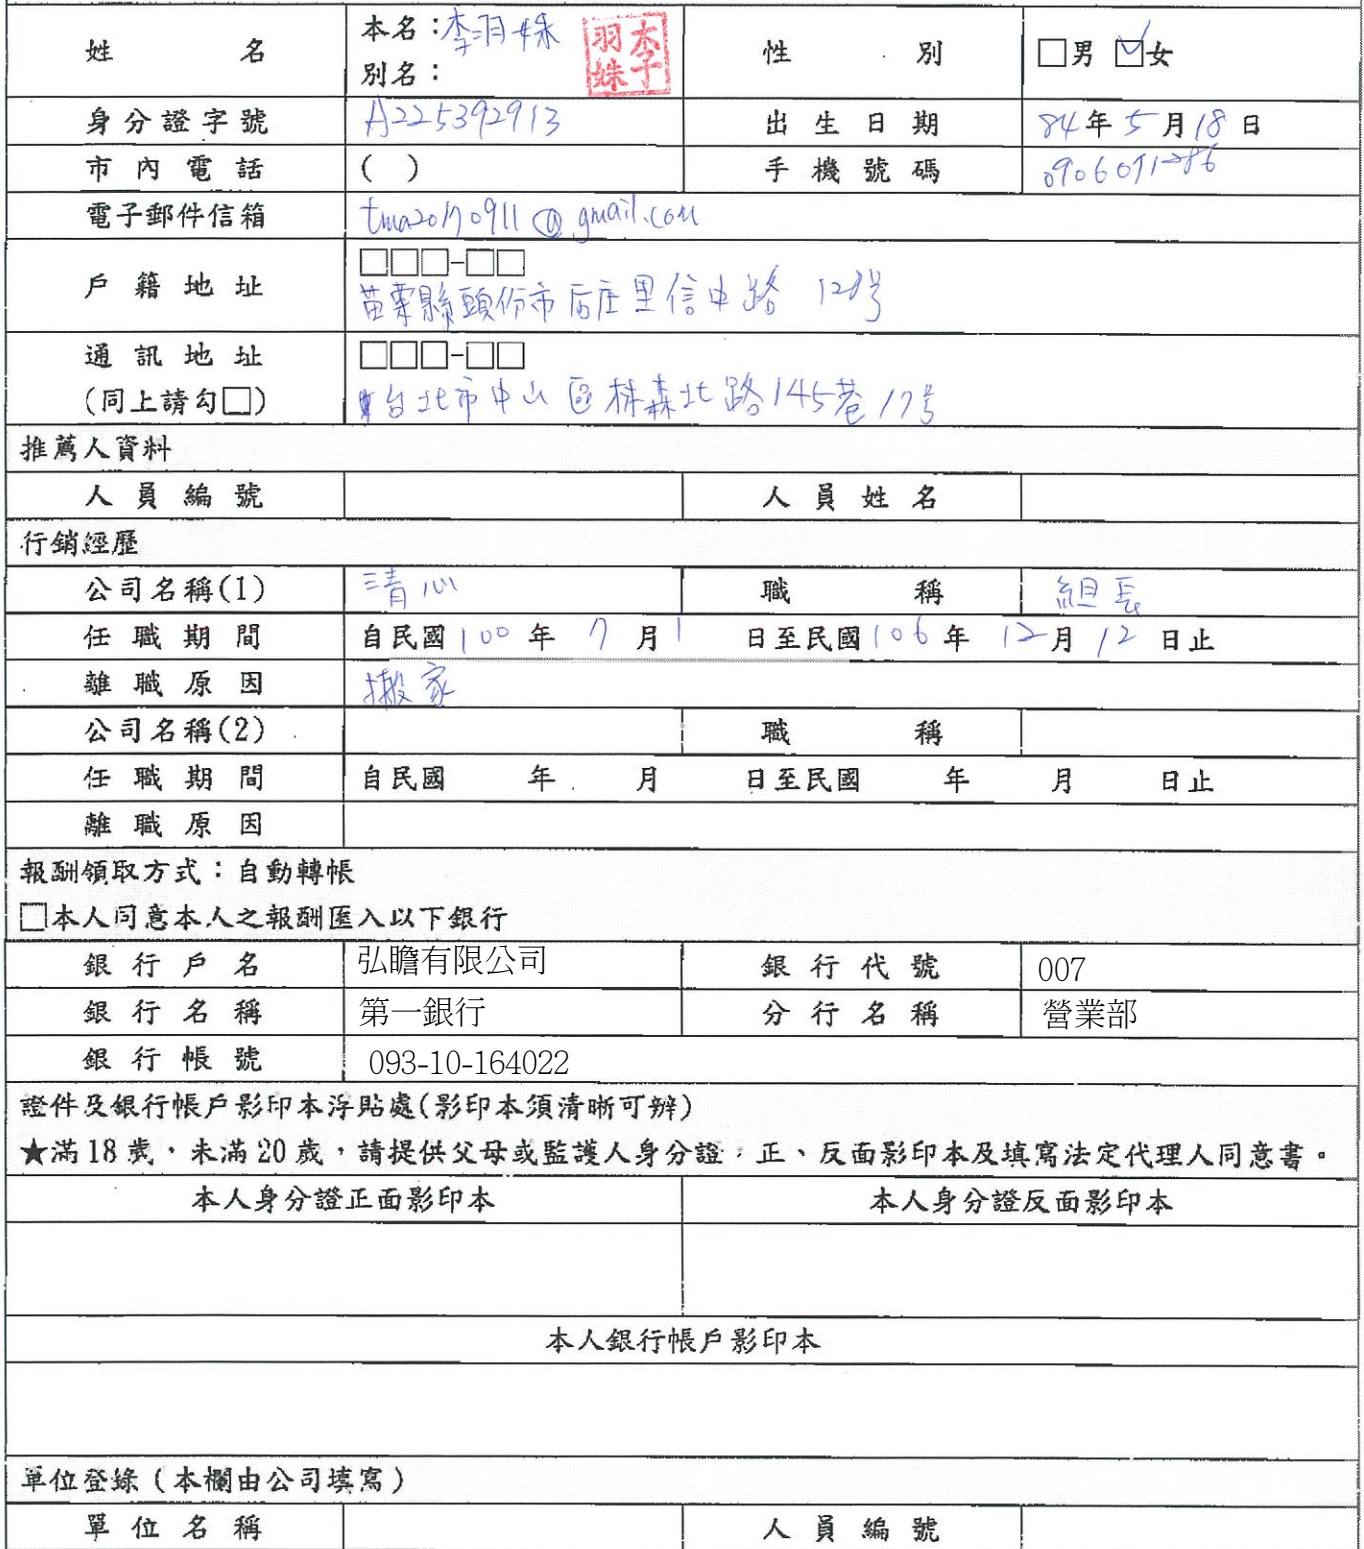 姓名 本名：李羽姝 李羽姝 性別 □男 ☑女
別名：
身分證字號 A225392913 出生日期 84年5月18日
市內電話 ( ) 手機號碼 0906091286
電子郵件信箱 tma20170911@gmail.com
戶籍地址 □□□-□□
苗栗縣頭份市后庄里信中路 128號
通訊地址 □□□-□□
(同上請勾□) 台北市中山區林森北路145巷17號
推薦人資料
人員編號 人員姓名
行銷經歷
公司名稱(1) 清心 職稱 組長
任職期間 自民國100年7月1日至民國106年12月12日止
離職原因 搬家
公司名稱(2) 職稱
任職期間 自民國 年 月 日至民國 年 月 日止
離職原因
報酬領取方式：自動轉帳
□本人同意本人之報酬匯入以下銀行
銀行戶名 弘瞻有限公司 銀行代號 007
銀行名稱 第一銀行 分行名稱 營業部
銀行帳號 093-10-164022
證件及銀行帳戶影印本浮貼處(影印本須清晰可辨)
★滿18歲，未滿20歲，請提供父母或監護人身分證，正、反面影印本及填寫法定代理人同意書。
本人身分證正面影印本 本人身分證反面影印本
本人銀行帳戶影印本
單位登錄（本欄由公司填寫）
單位名稱 人員編號